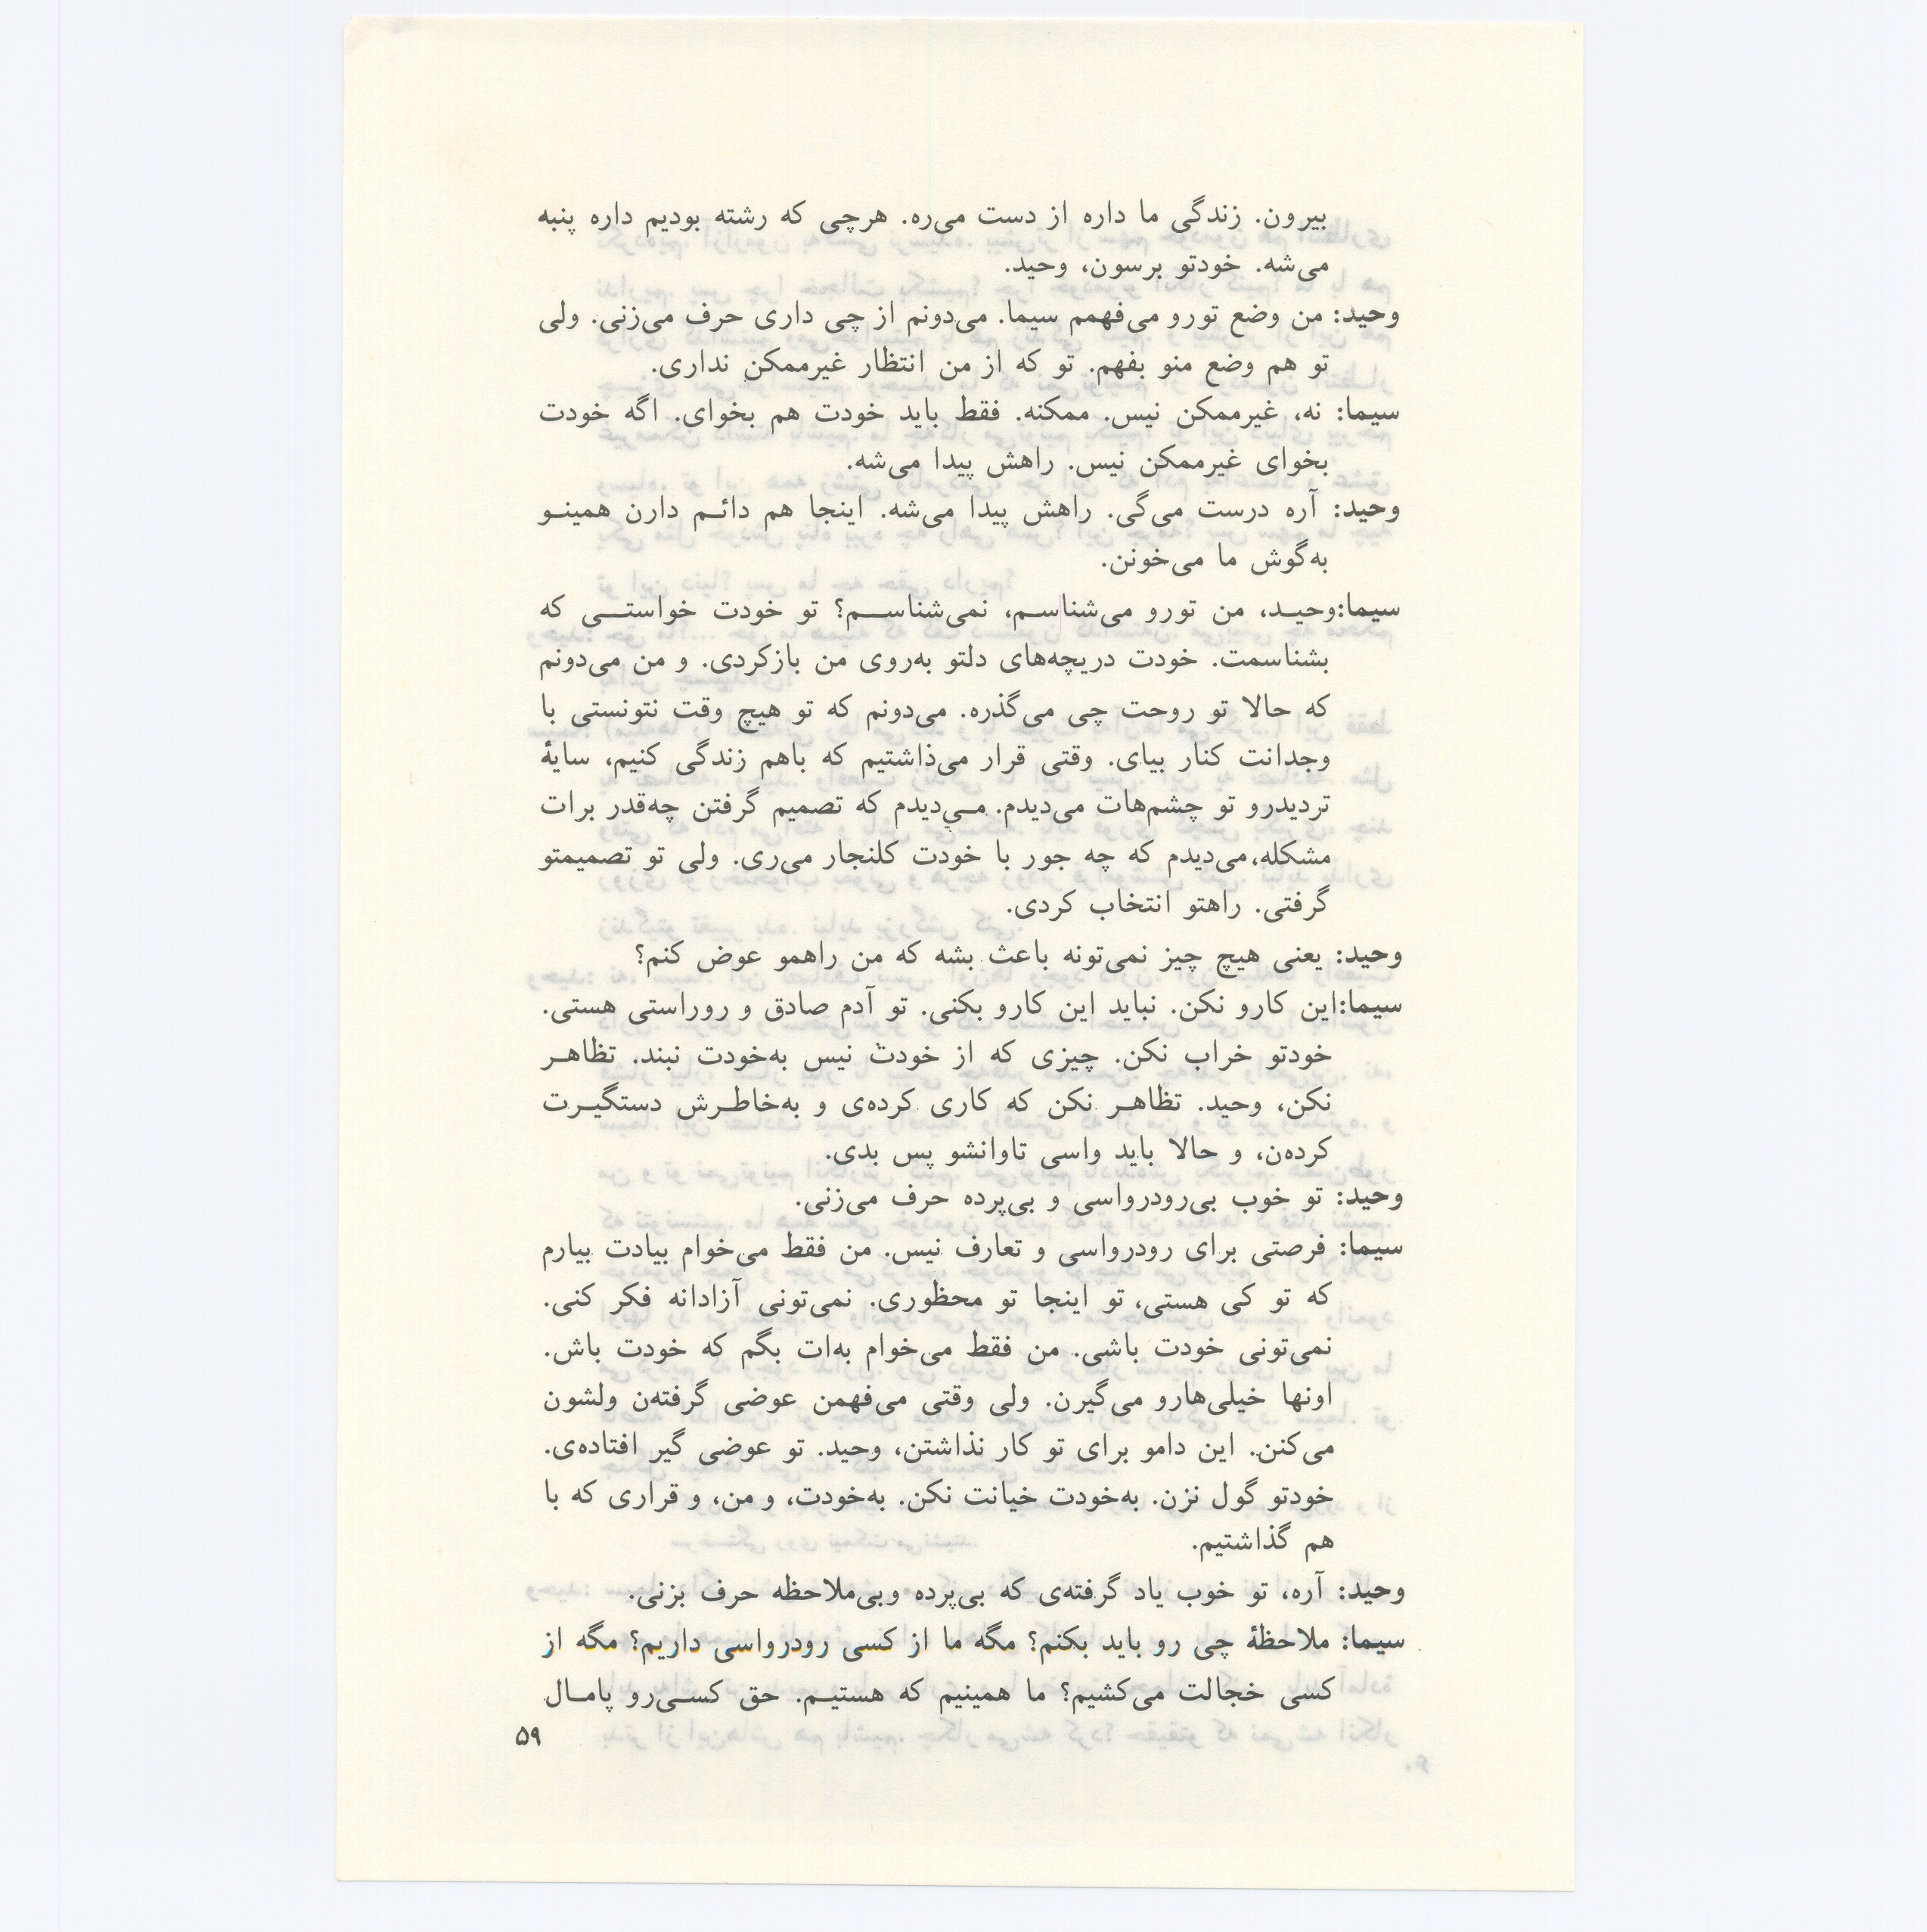 بیرون. زندگی ما داره از دست می‌ره. هرچی که رشته بودیم داره پنبه
می‌شه. خودتو برسون، وحید.
وحید: من وضع تورو می‌فهمم سیما. می‌دونم از چی داری حرف می‌زنی. ولی
تو هم وضع منو بفهم. تو که از من انتظار غیرممکن نداری.
سیما: نه، غیرممکن نیس. ممکنه. فقط باید خودت هم بخوای. اگه خودت
بخوای غیرممکن نیس. راهش پیدا می‌شه.
وحید: آره درست می‌گی. راهش پیدا می‌شه. اینجا هم دائم دارن همینو
به‌گوش ما می‌خونن.
سیما:وحید، من تورو می‌شناسم، نمی‌شناسم؟ تو خودت خواستی که
بشناسمت. خودت دریچه‌های دلتو به‌روی من بازکردی. و من می‌دونم
که حالا تو روحت چی می‌گذره. می‌دونم که تو هیچ وقت نتونستی با
وجدانت کنار بیای. وقتی قرار می‌ذاشتیم که باهم زندگی کنیم، سایهٔ
تردیدرو تو چشم‌هات می‌دیدم. می‌دیدم که تصمیم گرفتن چه‌قدر برات
مشکله، می‌دیدم که چه جور با خودت کلنجار می‌ری. ولی تو تصمیمتو
گرفتی. راهتو انتخاب کردی.
وحید: یعنی هیچ چیز نمی‌تونه باعث بشه که من راهمو عوض کنم؟
سیما:این کارو نکن. نباید این کارو بکنی. تو آدم صادق و روراستی هستی.
خودتو خراب نکن. چیزی که از خودت نیس به‌خودت نبند. تظاهر
نکن، وحید. تظاهر نکن که کاری کرده‌ی و به‌خاطرش دستگیرت
کرده‌ن، و حالا باید واسی تاوانشو پس بدی.
وحید: تو خوب بی‌رودرواسی و بی‌پرده حرف می‌زنی.
سیما: فرصتی برای رودرواسی و تعارف نیس. من فقط می‌خوام بیادت بیارم
که تو کی هستی، تو اینجا تو محظوری. نمی‌تونی آزادانه فکر کنی.
نمی‌تونی خودت باشی. من فقط می‌خوام به‌ات بگم که خودت باش.
اونها خیلی‌هارو می‌گیرن. ولی وقتی می‌فهمن عوضی گرفته‌ن ولشون
می‌کنن. این دامو برای تو کار نذاشتن، وحید. تو عوضی گیر افتاده‌ی.
خودتو گول نزن. به‌خودت خیانت نکن. به‌خودت، و من، و قراری که با
هم گذاشتیم.
وحید: آره، تو خوب یاد گرفته‌ی که بی‌پرده وبی‌ملاحظه حرف بزنی.
سیما: ملاحظهٔ چی رو باید بکنم؟ مگه ما از کسی رودرواسی داریم؟ مگه از
کسی خجالت می‌کشیم؟ ما همینیم که هستیم. حق کسی‌رو پامال
۵۹